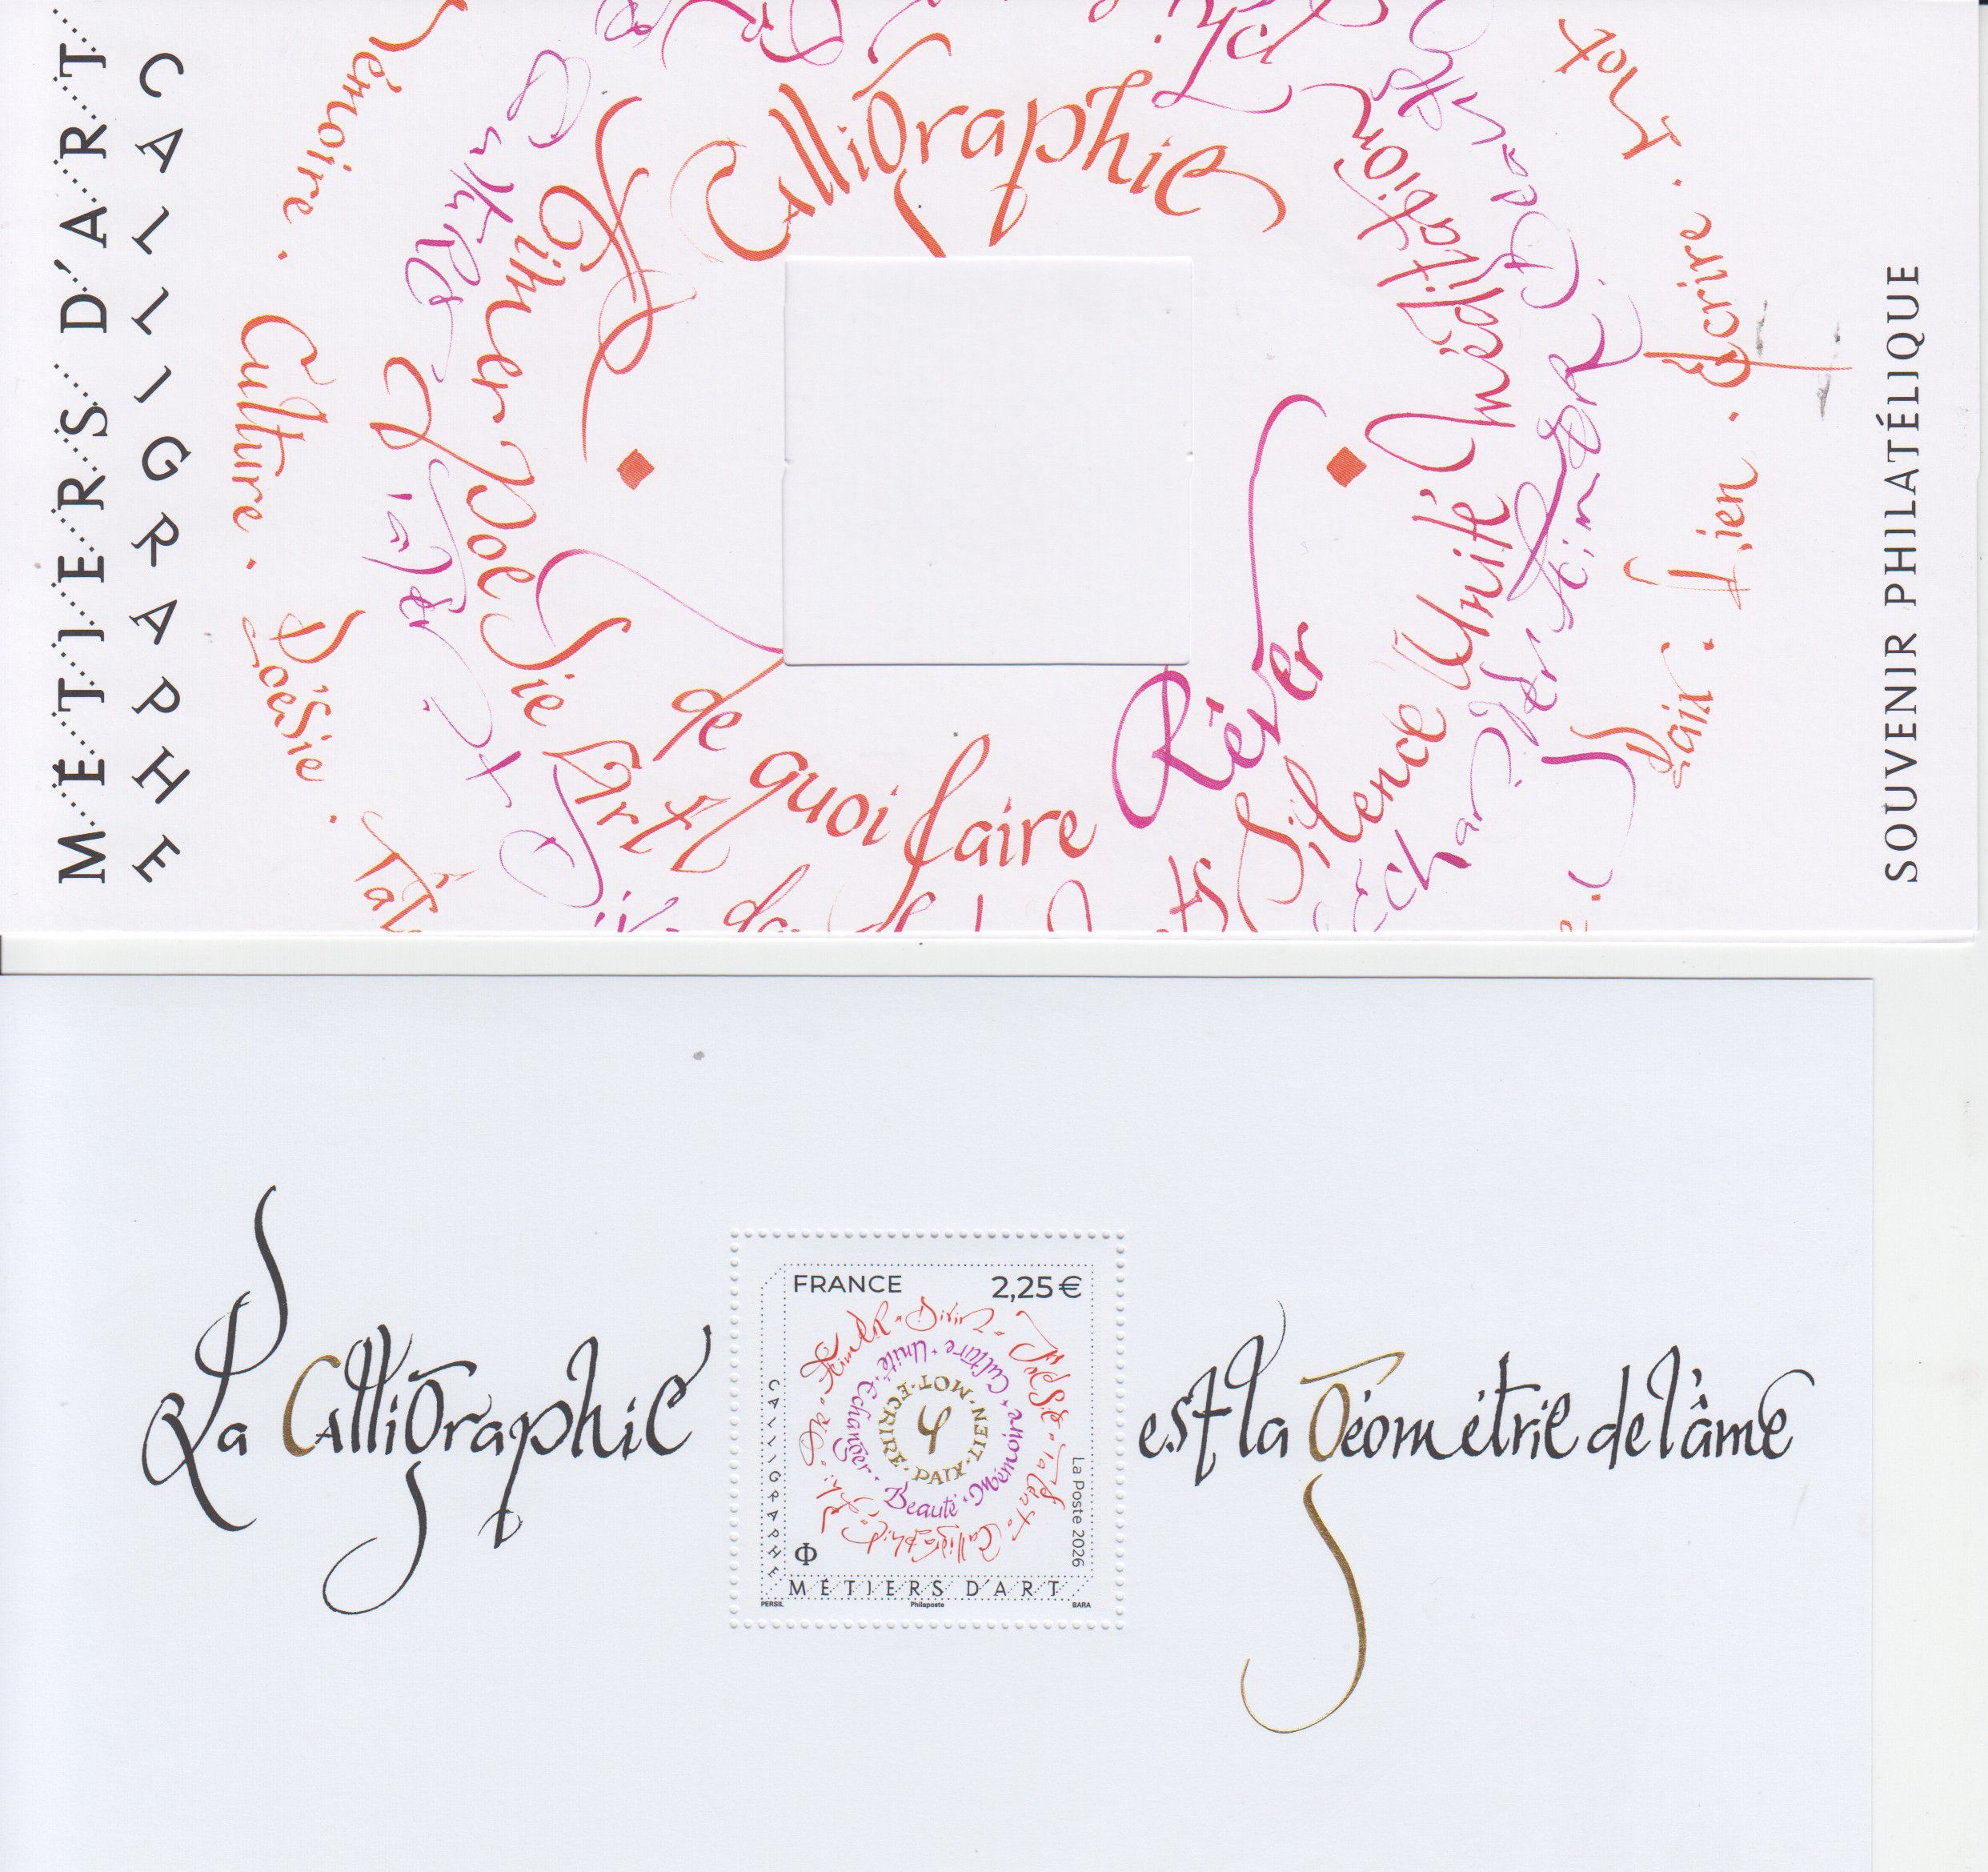 MÉTIERS D'ART
CALLIGRAPHE
Mémoire . Culture . Poésie .
Calligraphie
de quoi faire Rêver
Culture
Aimer Poesie Art
Silence Unité Méditation
Échanger
Mot . Écrire . Lien . Paix .
SOUVENIR PHILATÉLIQUE
La Calligraphie
est la Géométrie de l'âme
FRANCE 2,25€
Poésie Talent Calligraphie
Unité Culture Mémoire Beauté Échanger
ÉCRIRE MOT LIEN PAIX
CALLIGRAPHE
La Poste 2026
Φ
MÉTIERS D'ART
PERSIL Philaposte BARA